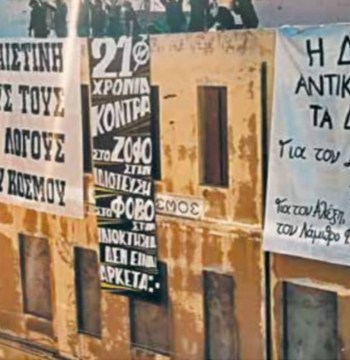 ΙΣΤΙΝΗ
ΥΣ ΤΟΥΣ
ΛΟΓΟΥΣ
ΚΟΣΜΟΥ
21
ΧΡΟΝΙΑ
ΚΟΝΤΡΑ
ΣΤΟ ΖΟΦΟ
ΣΤΗΝ
ΙΔΙΩΤΕΥΣΗ
ΣΤΟ ΦΟΒΟ
ΣΤΗΝ
ΙΔΙΟΚΤΗΣΙΑ
ΔΕΝ ΕΙΝΑΙ
ΑΡΚΕΤΑ...
ΣΜΟΣ
Η Δ
ΑΝΤΙΚ
ΤΑ Δ
Για τον
Για τον Αλέξη,
τον Λάμπρο Φ